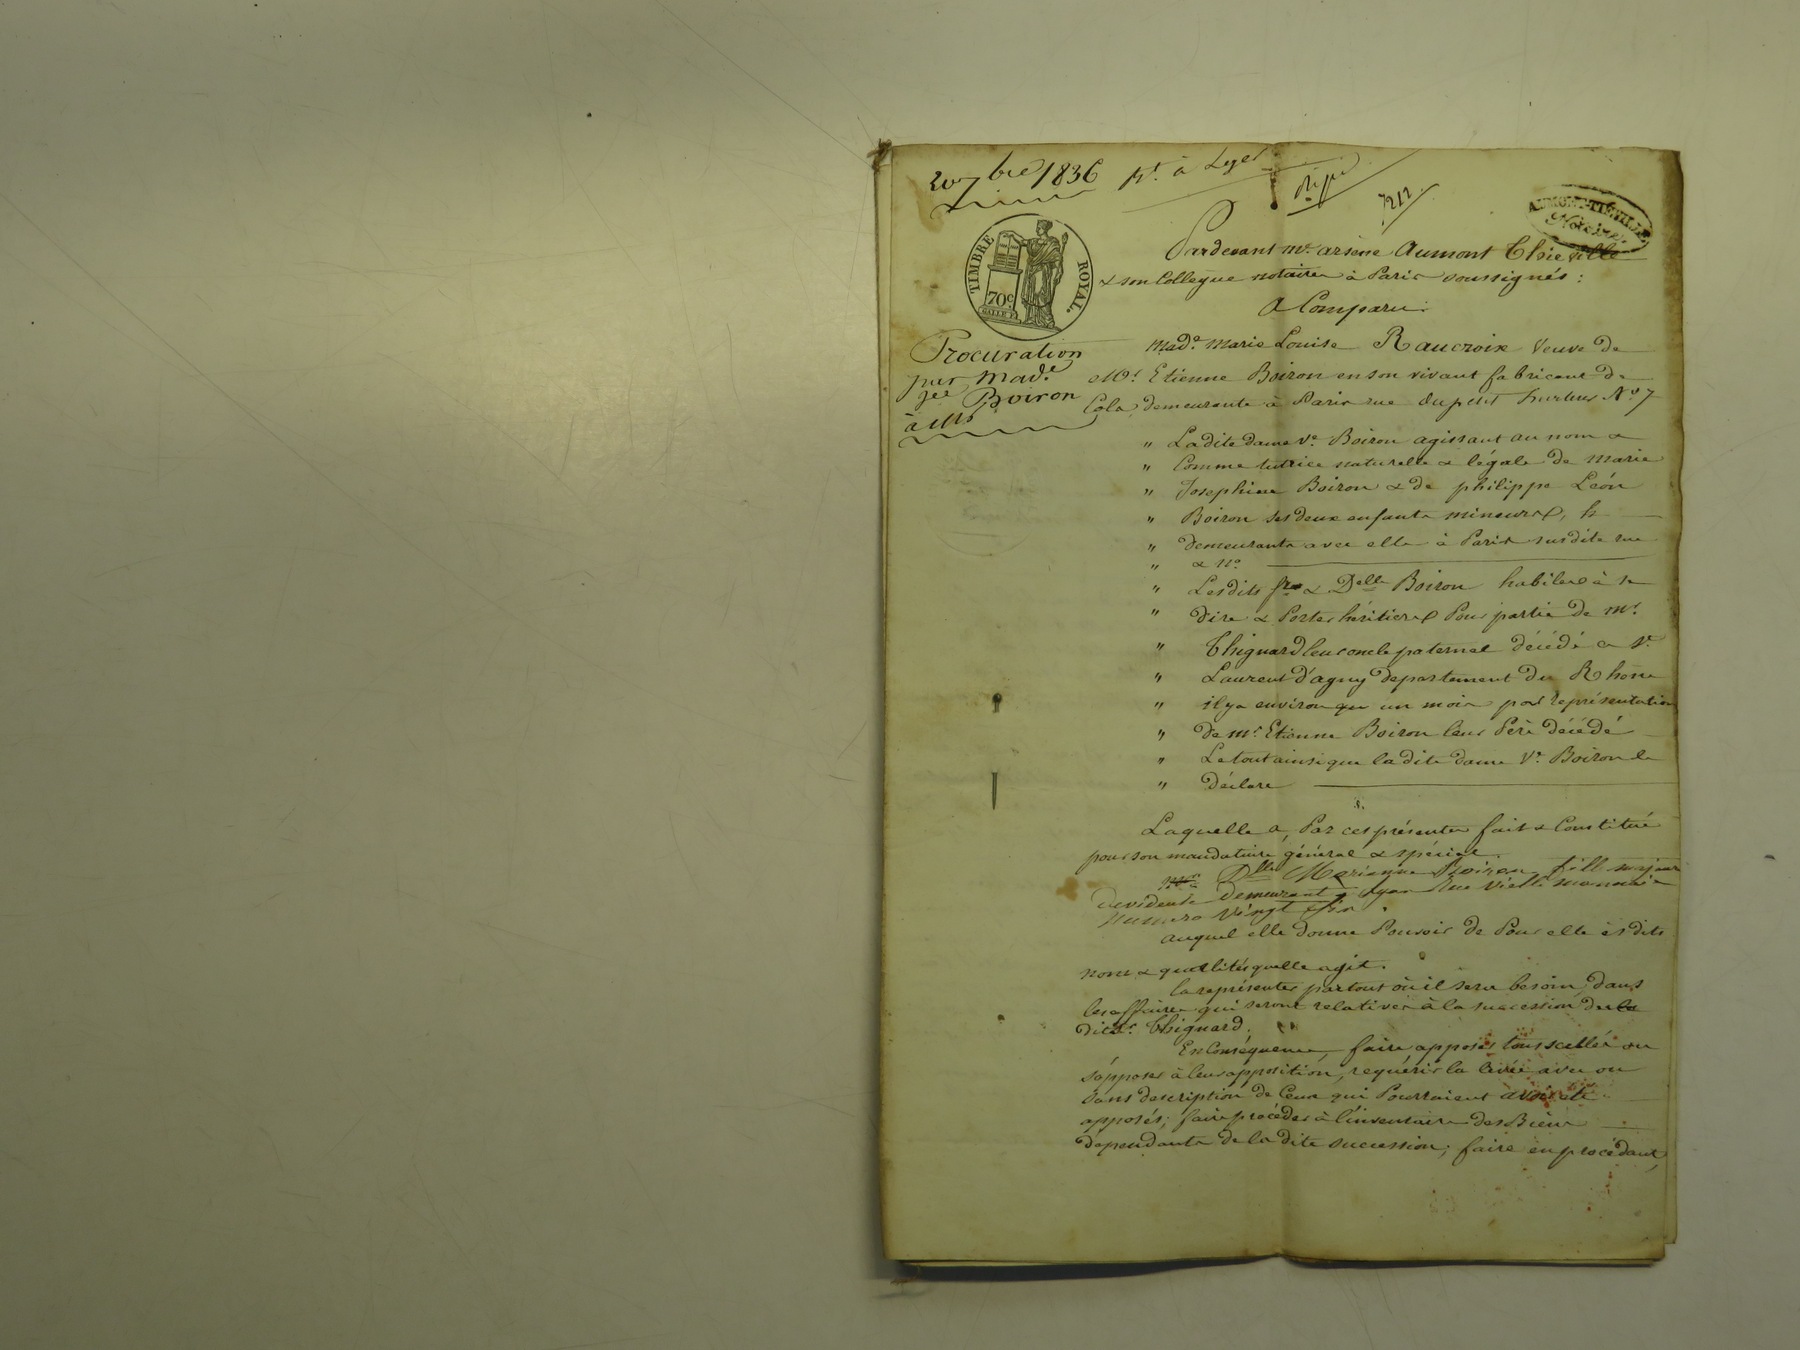 7bre 1836
AUMONT-THIÉVILLE
Notaire
TIMBRE ROYAL.
70c
Pardevant Me. arsène Aumont Thiéville
& son Collegue notaires à Paris soussignés :
a Comparu :
Procuration
par Made
Boiron
à Mr
Made. Marie Louise Raucroix Veuve de
Mr. Etienne Boiron en son vivant fabricant de
Cols, demeurante à Paris rue du petit hurleur No. 7
" La dite dame Ve. Boiron agissant au nom &
" Comme tutrice naturelle & légale de Marie
" Josephine Boiron & de philippe Léon
" Boiron ses deux enfants mineurs,
" demeurants avec elle à Paris susdite rue
" & No.
" Les dits Sr. & Delle Boiron habiles à se
" dire & Porter héritiers Pour partie de Mr.
" Thignard leur oncle paternel décédé a St.
" Laurent d'agny departement du Rhône
" il y a environ un mois par représentation
" de Mr. Etienne Boiron leur Père décédé
" Le tout ainsi que la dite dame Ve. Boiron le
" déclare
Laquelle a, Par ces présentes fait & Constitué
pour son mandataire général & spécial.
Delle Marianne Boiron fille majeure
demeurant à Lyon Rue Vieille monnaie
numero vingt six.
auquel elle donne Pouvoir de Pour elle ès dits
noms & qualités qu'elle agit.
la représenter partout où il sera besoin, dans
les affaires qui seront relatives à la succession du
dit Sr. Thignard.
En Conséquence, faire apposer tous scellés ou
s'opposer à leur apposition, requérir la levée avec ou
sans description de Ceux qui Pourraient avoir été
apposés; faire procéder à l'inventaire des Biens
dépendants de la dite succession; faire en procédant,